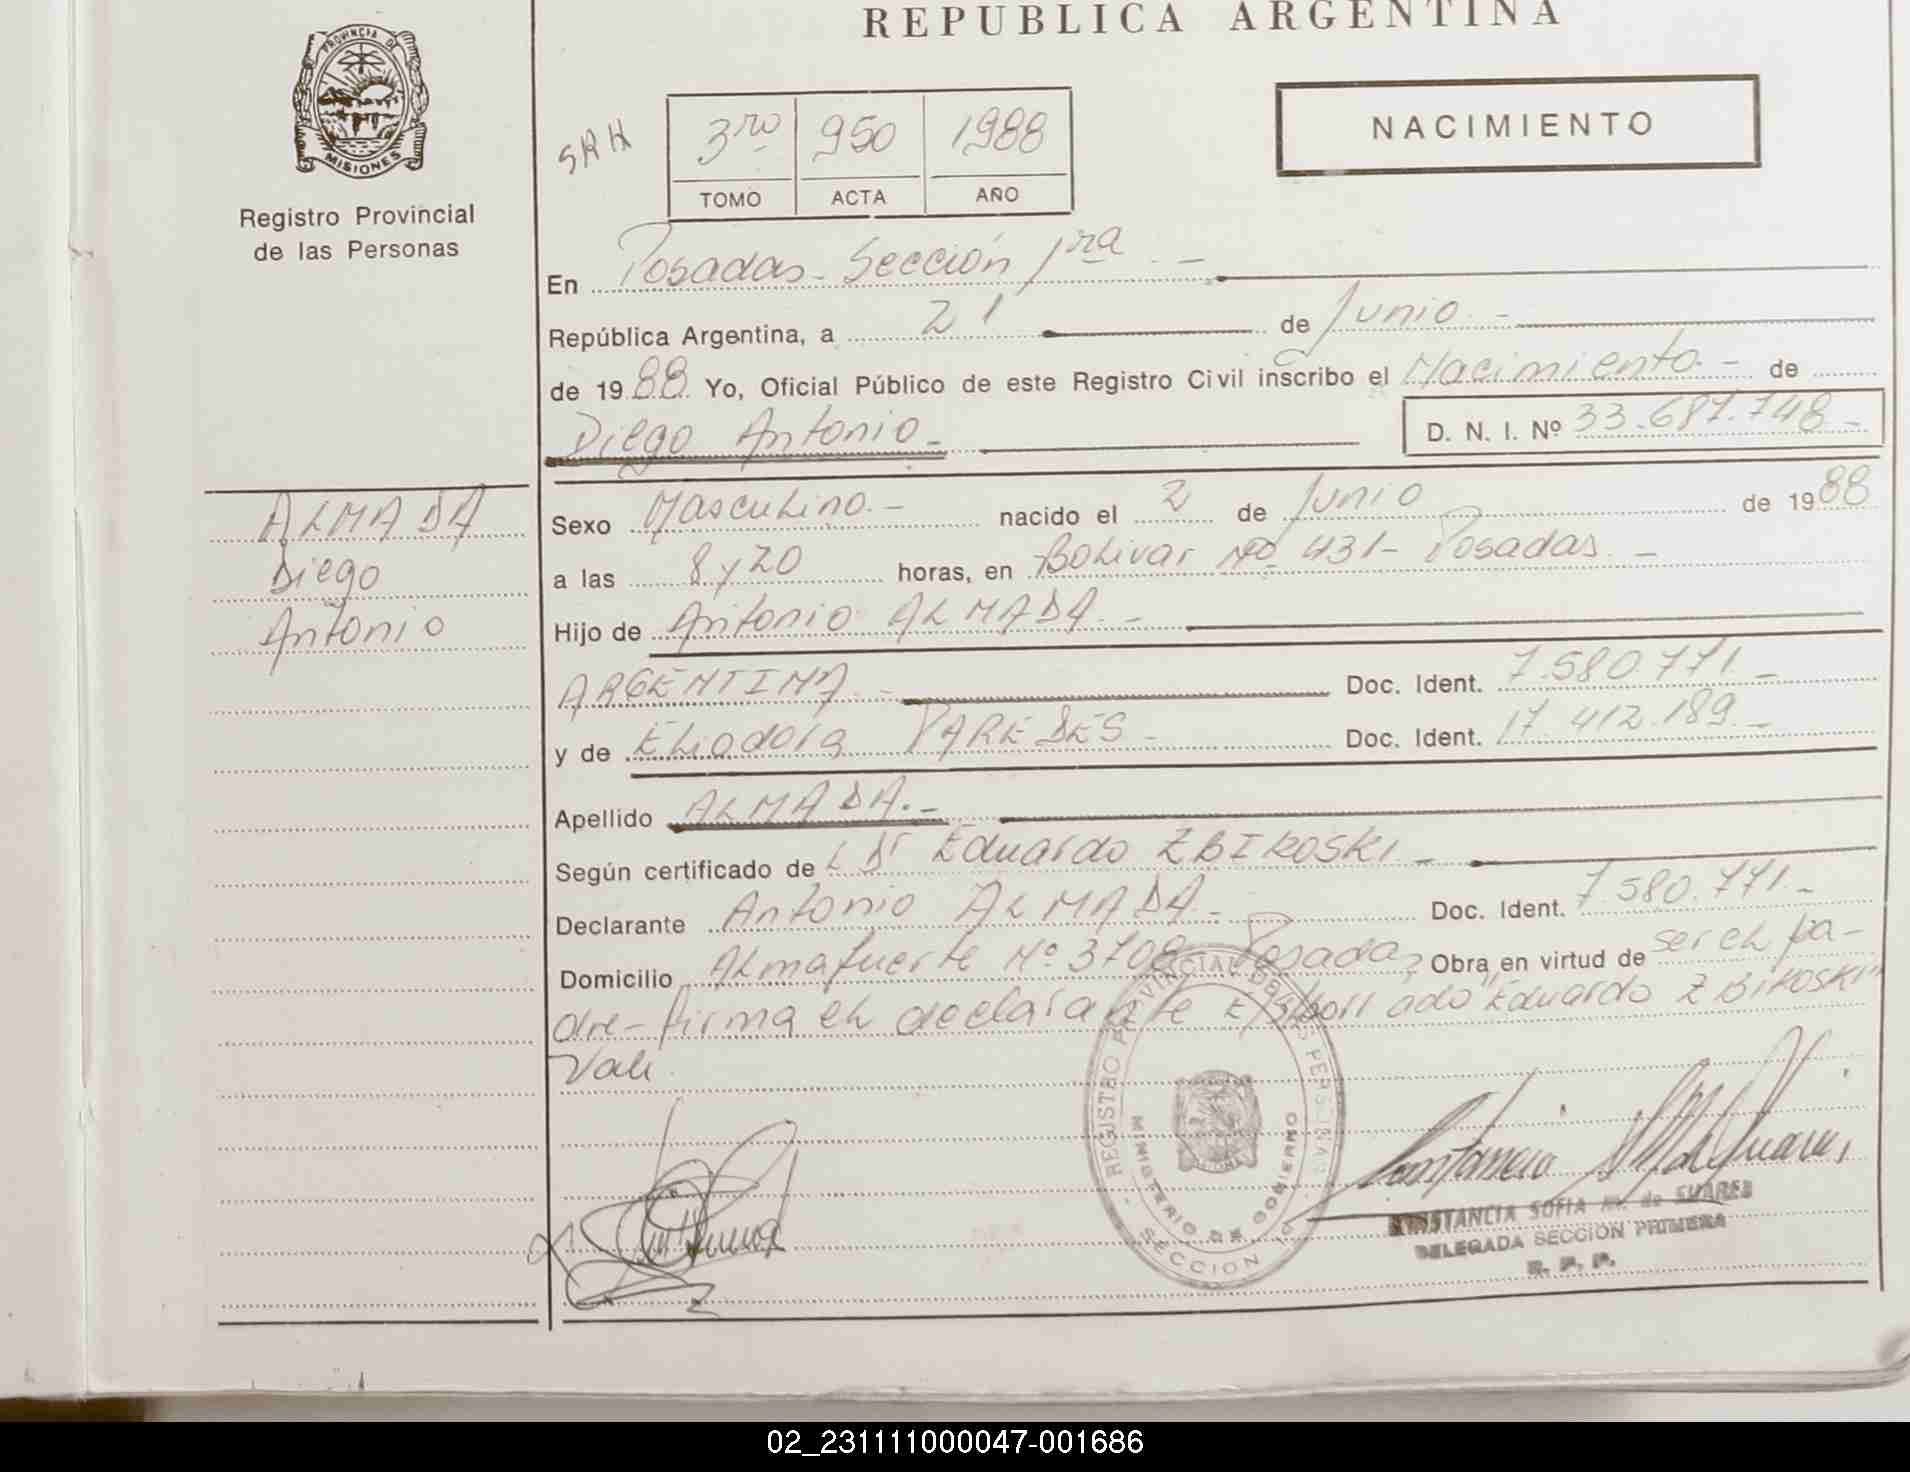 REPUBLICA ARGENTINA
PROVINCIA DE
MISIONES
Registro Provincial
de las Personas
SRH
3ro 950 1988
TOMO ACTA AÑO
NACIMIENTO
En Posadas - Sección 1ra. -
República Argentina, a 21 de Junio. -
de 1988. Yo, Oficial Público de este Registro Civil inscribo el Nacimiento. - de
Diego Antonio. - D. N. I. Nº 33.687.748 -
ALMADA
Diego
Antonio
Sexo Masculino. - nacido el 2 de Junio de 1988
a las 8 y 20 horas, en Bolivar Nº 431 - Posadas. -
Hijo de Antonio ALMADA. -
ARGENTINA. - Doc. Ident. 7.580.771. -
y de Eliodora PAREDES - Doc. Ident. 17.412.189. -
Apellido ALMADA. -
Según certificado de L Dr Eduardo ZBIKOSKI -
Declarante Antonio ALMADA - Doc. Ident. 7.580.771. -
Domicilio Almafuerte Nº 3708 Posadas Obra en virtud de ser el pa-
dre - firma el declarante E/S/borrado "Eduardo ZBIKOSKI"
Vale.
REGISTRO PROVINCIAL DE LAS PERSONAS
MINISTERIO DE GOBIERNO
SECCION 1a
CONSTANCIA SOFIA M. de SUARES
DELEGADA SECCION PRIMERA
R. P. P.
02_231111000047-001686